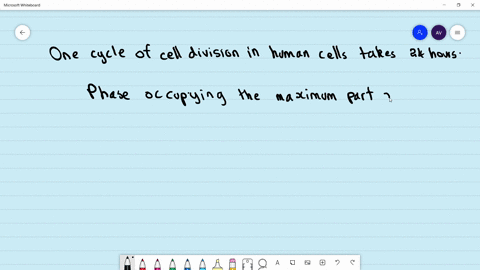 Microsoft Whiteboard
AV
One cycle of cell division in human cells takes 24 hours.
Phase occupying the maximum part ?